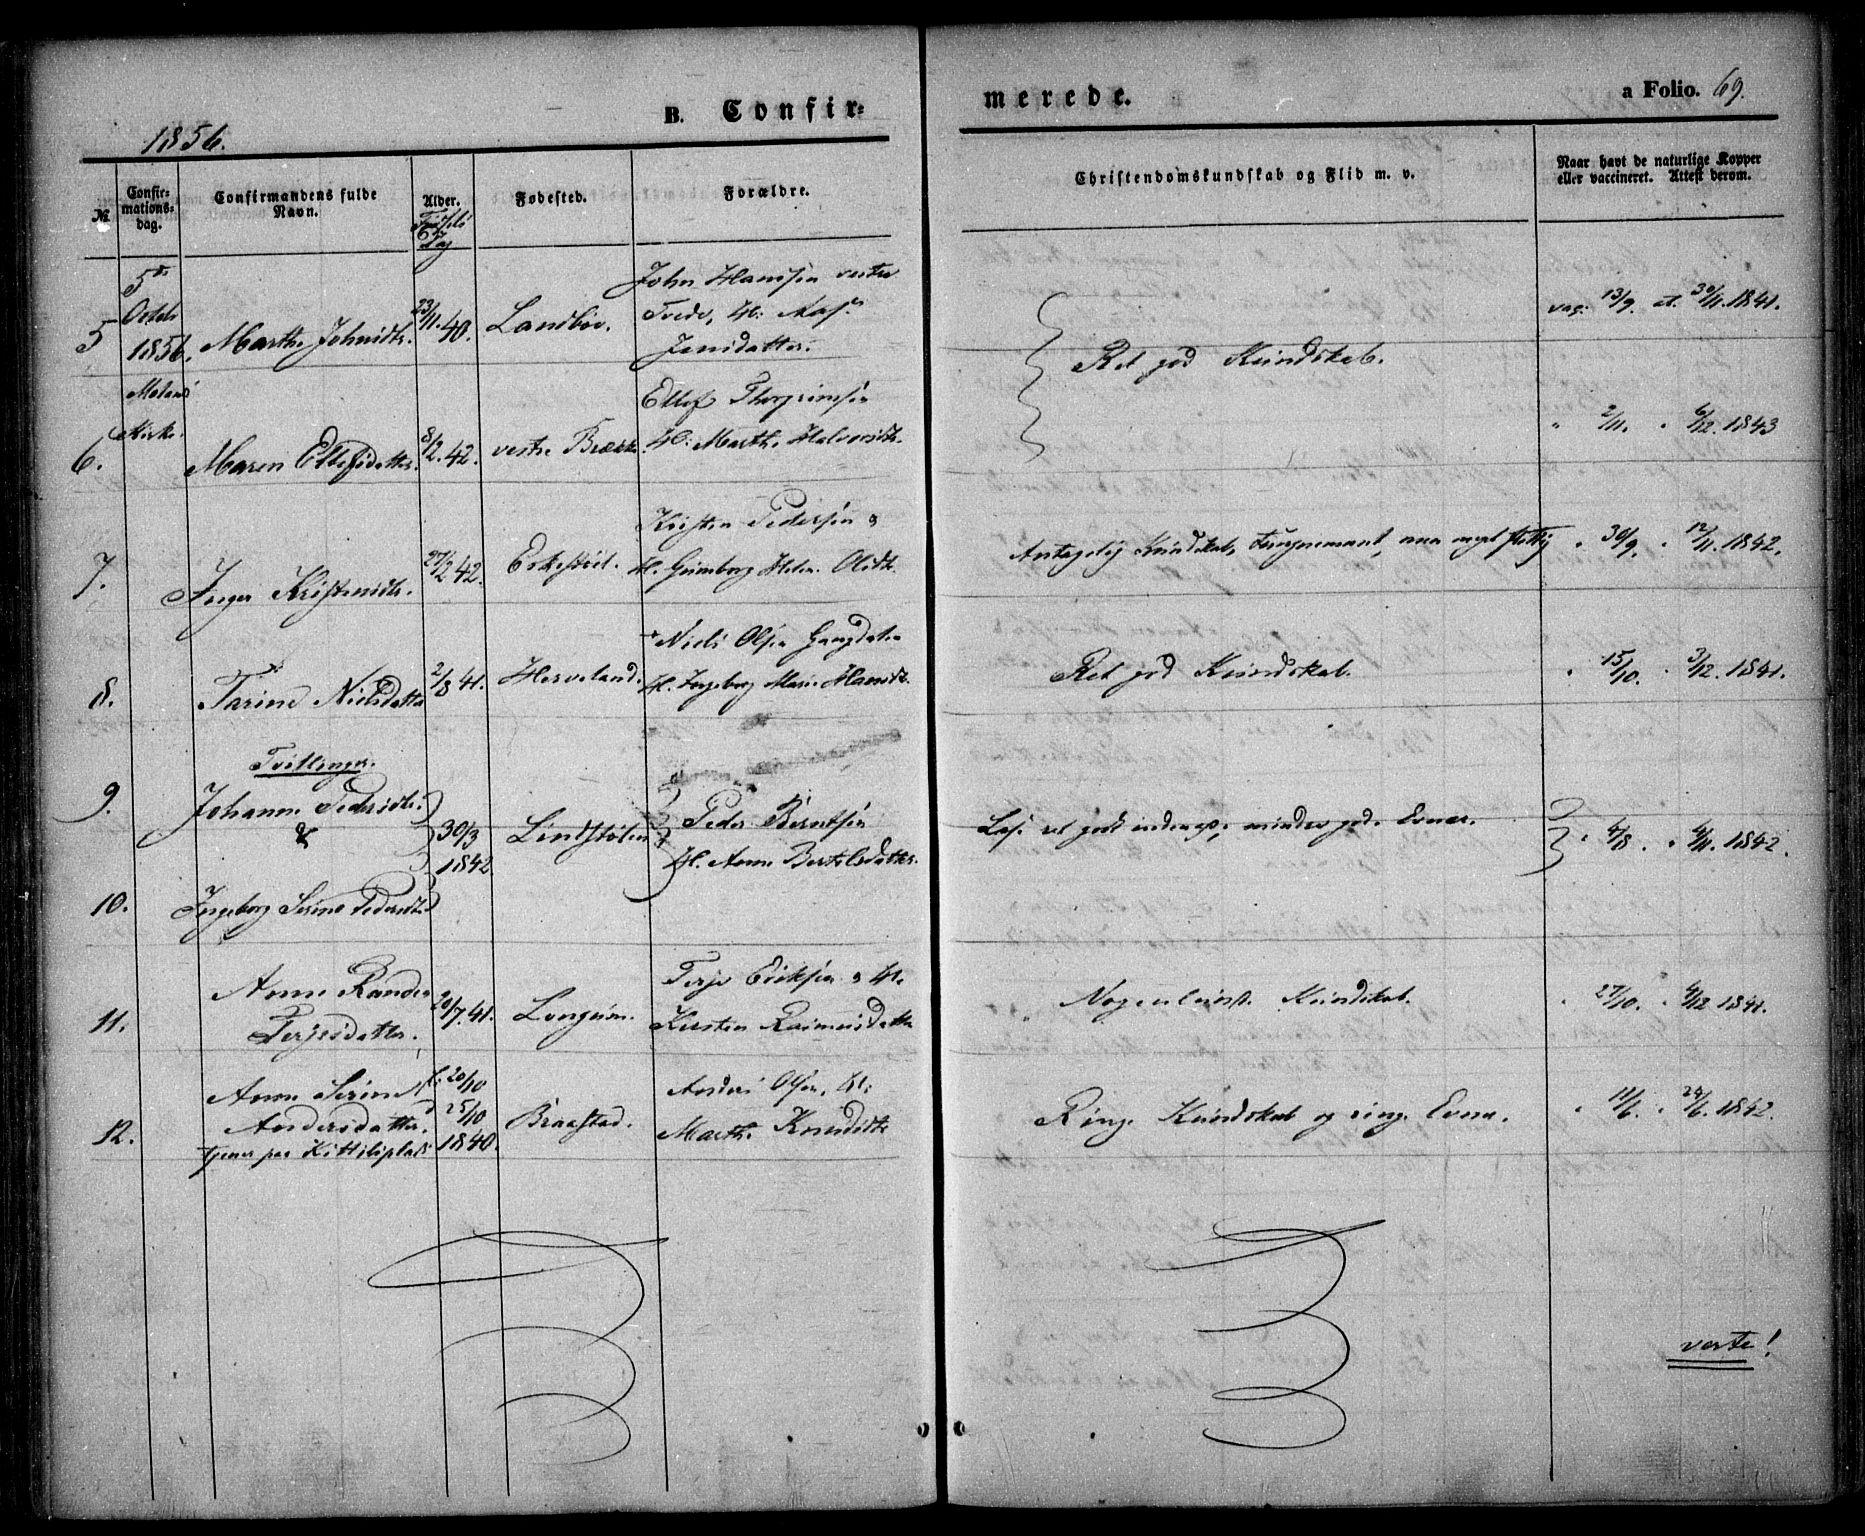 1856.
B. Confir-
merede.
a Folio. 69.
№
Confir-
mations-
dag.
Confirmandens fulde
Navn.
Alder.
Fødested.
Forældre.
Christendomskundskab og Flid m. v.
Naar havt de naturlige Kopper
eller vaccineret. Attest derom.
5
Octbr
1856.
Molands
Kirke.
5 Marthe Johnsdtr. 23/11.40. Landbøe.
John Hansen vestre
Tvede, H:
Jensdatter.
Ret god Kundskab.
vac: 13/9. at. 30/11.1841.
6. Maren Ellefsdatter. 8/2.42. vestre Brække
Ellef Thorgrimsen
H: Marthe Halvorsdtr.
" 2/11. " 6/12.1843
7. Inger Kristensdtr. 27/2 42.
Kristen Pedersen &
H. Olsdtr.
Antagelig Kundskab, tungnemmet, men meget flittig
" 30/9. " 12/11.1842.
8. Tarine Nielsdatter 2/8 41. Herveland.
Niels Olsen
H. Ingeborg Marie Hansdtr.
Ret god Kundskab.
" 15/10. " 3/12.1841.
Tvillinger.
9. Johanne Pedersdtr.
&
30/3
1842
Lindstølen
Peder Berntsen
H. Anne Bertelsdatter.
Læse ret godt indenad, mindre gode Evner.
" 4/8. " 4/11.1842.
10. Ingeborg Serine Pedersdtr.
11. Anne Randea
Terjesdatter.
20/7.41. Longum.
Terje Eriksen & H.
Kirsten Raimersdatter
Nogenlunde Kundskab.
" 27/10. " 4/12 1841.
12. Anne Serine
Andersdatter.
tjener paa Kittilsplads
f: 20/10
d 25/10
1840.
Braastad.
Anders Olsen, H:
Marthe Knudsdtr
Ringe Kundskab og ringe Evner.
" 11/6. " 24/6.1842.
verte!